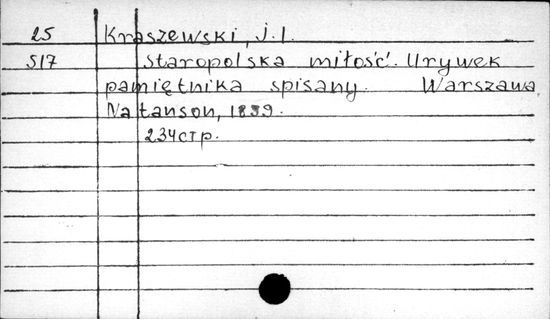 25 Kraszewski, J.I.
517 Staropolska miłość. Urywek
pamiętnika spisany. Warszawa,
Natanson, 1859.
234стр.